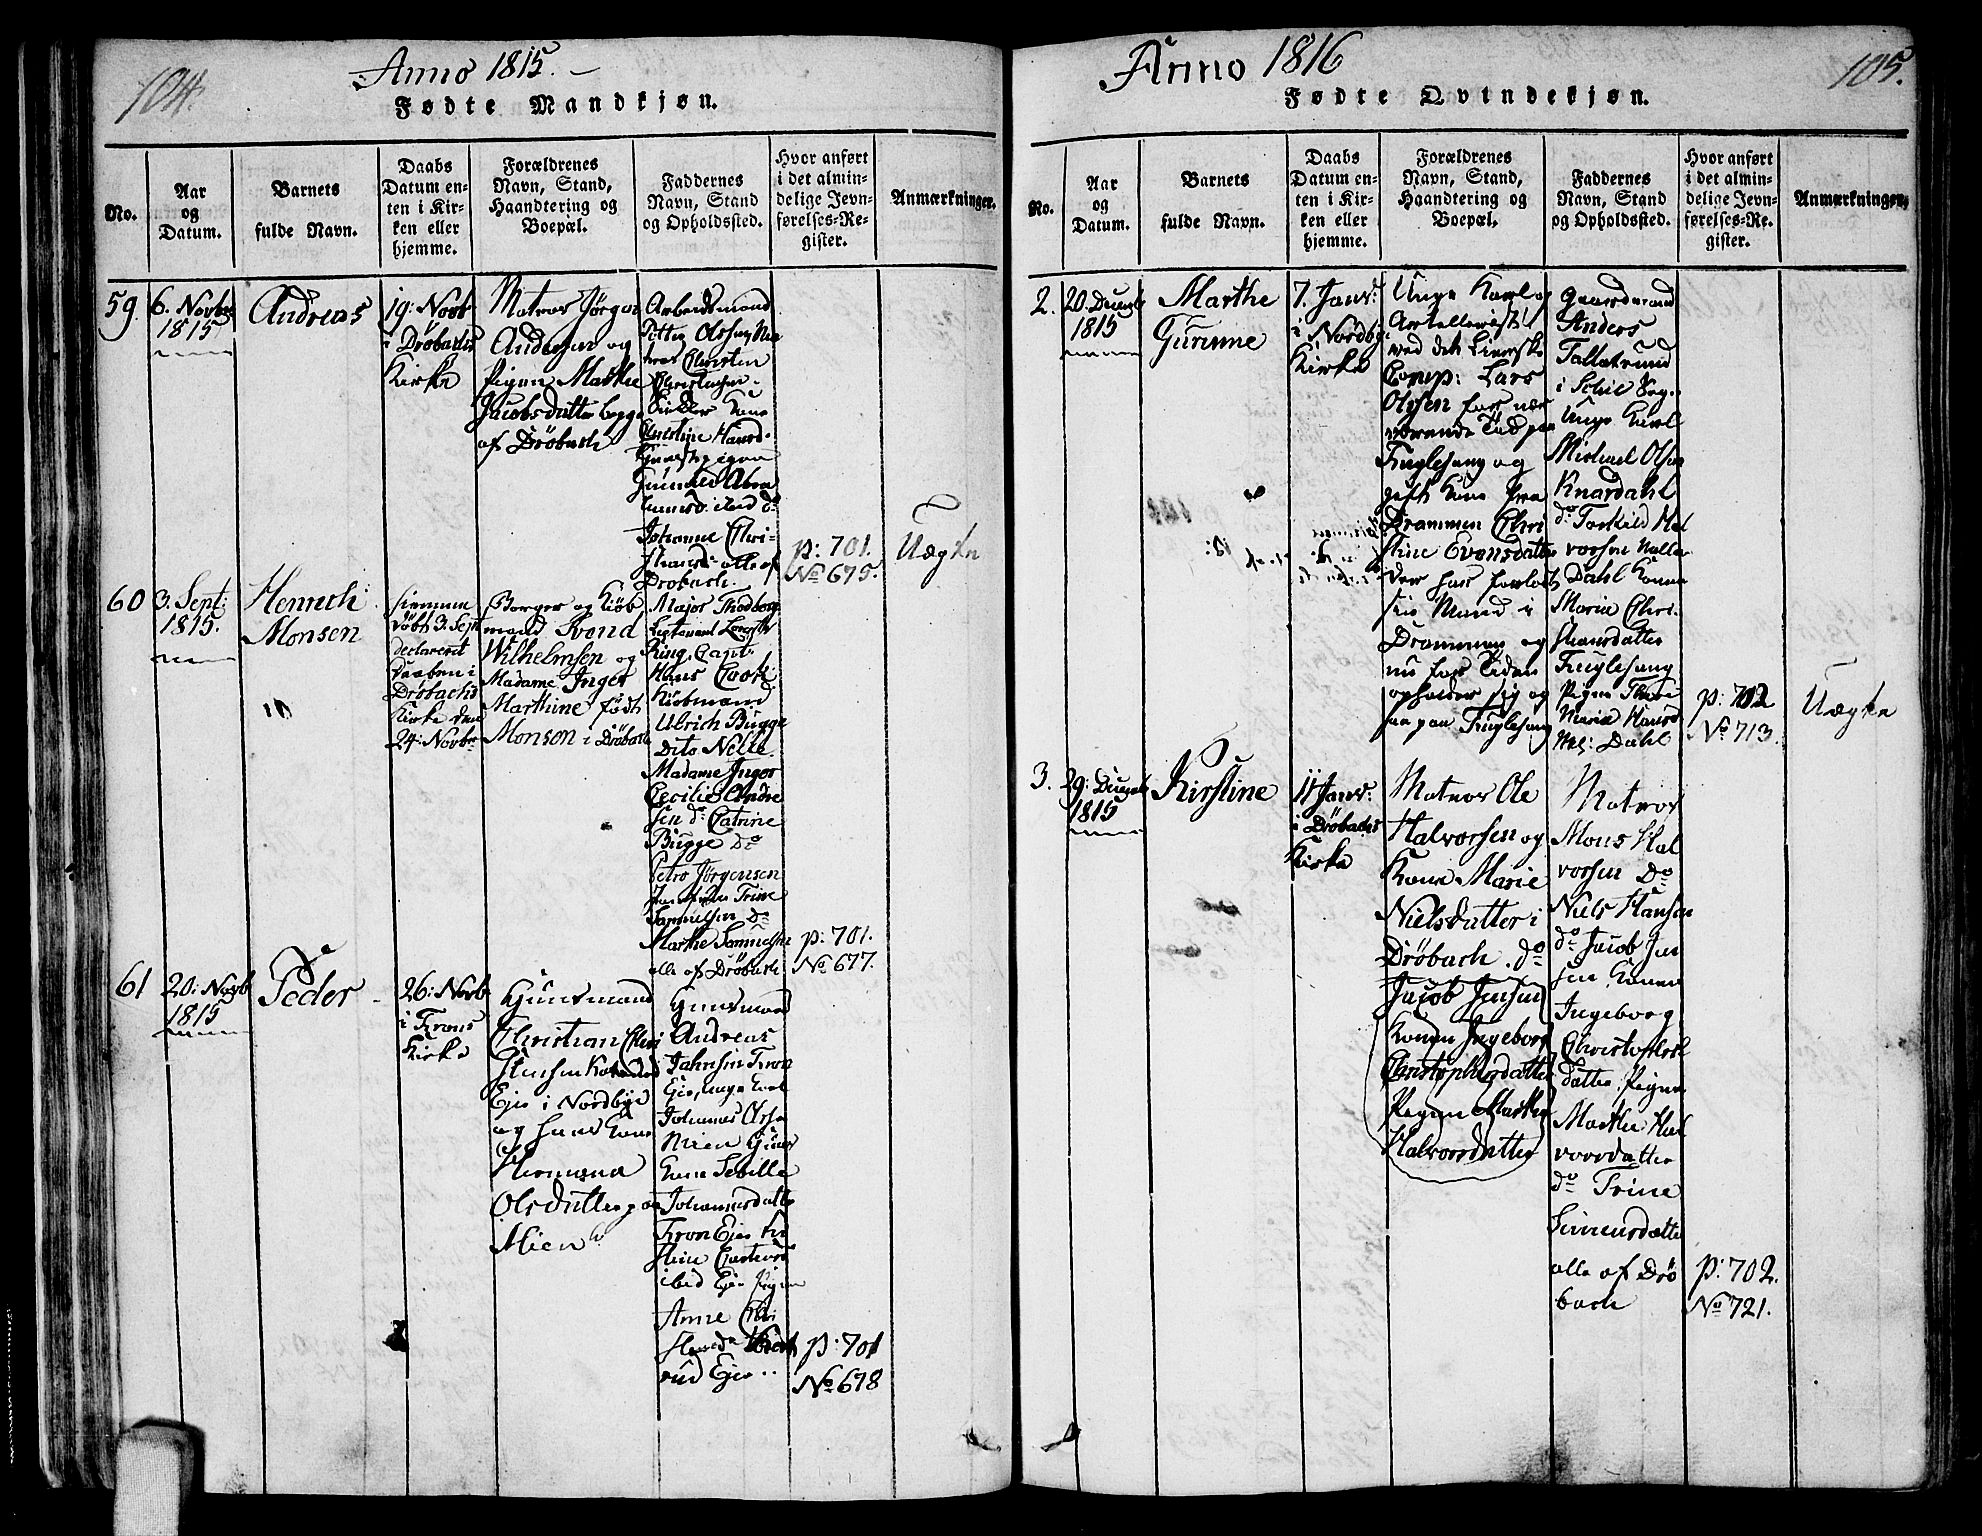 104.
Anno 1815.
Fødte Mandkjøn.
No.
Aar
og
Datum.
Barnets
fulde Navn.
Daabs
Datum en-
ten i Kir-
ken eller
hjemme.
Forældrenes
Navn, Stand,
Haandtering og
Boepæl.
Faddernes
Navn, Stand
og Opholdssted.
Hvor anført
i det almin-
delige Jevn-
førelses-Re-
gister.
Anmærkninger.
59.
6. Novbr
1815
Andreas
19: Novb
i Drøbachs
Kirke
Matros Jørgen
Andersen og
Pigen Marthe
Jacobsdatter begge
af Drøbach
Arbeidsmand
Petter Olssen Ma-
tros Christen
Christensen
Kone
Christine Hansd.
Gunnild Abra
hamsd. ibid d:o
Johanne Chri-
stiansd: alle af
Drøbach.
p: 701.
No 675.
Uægte
60
3. Sept:
1815.
Henrich
Monsen
hiemme
døbt 3: Sept
declareret
Daaben i
Drøbachs
Kirke den
24: Novbr
Borger og Kiøb
mand Svend
Wilhelmsen og
Madame Inger
Marthine født
Monson i Drøbach
Major Thodberg
Lieutenant
Ring, Capt:
Hans Coock
Kiøbmand
Ulrich Bugge
Dito Nelle
Madame Inger
Cecilie Andre
sen d:o Catrine
Bugge D:o
Petro Jørgensen
Jomfrue Trine
Samuelsen D:o
Marthe Samuelsen
alle af Drøbach
p: 701.
No 677.
61
20: Novb
1815
Peder
26: Novb
i Krons
Kirke
Huusmand
Christian Chri
stensen
Eje i Nordbye
og hans Kone
Hermana
Olsdatter paa
Mien
Huusmand
Andreas
Johnsen Kron
Eje, unge Karl
Johannes Olsen
Mien Huus
Kone Sebille
Johannesdatter
Kron Eje
stine
ibid Eje Pigen
Anne Chri
rud Eje
p: 701
No 678
Anno 1816
105.
Fødte Qvindekjøn.
No.
Aar
og
Datum.
Barnets
fulde Navn.
Daabs
Datum en-
ten i Kir-
ken eller
hjemme.
Forældrenes
Navn, Stand,
Haandtering og
Boepæl.
Faddernes
Navn, Stand
og Opholdssted.
Hvor anført
i det almin-
delige Jevn-
førelses-Re-
gister.
Anmærkninger.
2.
20. Decemb
1815
Marthe
Gurinne
7. Janr:
i Nordby
Kirke
Unge Karl og
Artellerist
ved det
Comp: Lars
Olssen for nær
værende Tid paa
Fuglesang og
gift Kone fra
Drammen Chri
stine Evensdatter
der har forladt
sin Mand i
Drammen og
nu for Tiden
opholder sig og
saa paa Fuglesang
Gaardmand
Anders
Tallakrud
i Schie Sog.
Unge Karl
Michael Olsen
Knardahl
d:o Torkild Hal
vorsen
Dahl Konen
Maria Chri-
stiansdatter
Fuglesang
Pigen
Maria Hansd
Dahl
p: 702
No 713.
Uægte
3.
29: Decemb
1815
Kirstine
11 Janr:
i Drøbachs
Kirke
Matros Ole
Halvorsen og
Kone Marie
Nielsdatter i
Drøbach. d:o
Jacob Jensen
Konen Ingeborg
Christophersdatter
Pigen Marthe
Halvorsdatter
Matros
Mons Hal
vorsen D:o
Niels Hansen
d:o Jacob Jen
sen Konen
Ingeborg
Christophers
datter Pigen
Marthe Hal
vorsdatter
d:o Trine
Simensdatter
alle af Drø
bach
p: 702.
No 721.